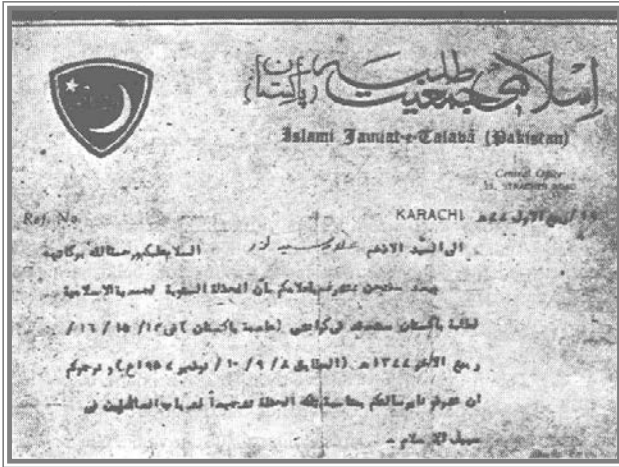 اسلامی جمعیت طلبہ (پاکستان)
Islami Jamiat-e-Talaba (Pakistan)
Central Office
23, STRACHEN ROAD
Ref. No. KARACHI ١٩/ربيع الاول ٤٤هـ
الى السيد الاخ السلام عليكم ورحمة الله بركاتهه
بعد فنحن نتشرف باعلامكم بأن الحفلة السنوية لجمعية الاسلامية
لطلبة باكستان ستنعقد فى كراتشى (عاصمة باكستان) فى ١٤/ ١٥ / ١٦ /
ربيع الآخر ١٣٧٤هـ (المطابق ٨/ ٩ / ١٠ / نوفمبر ١٩٥٤ع) و نرجوكم
ان برسالتكم بمناسبة تلك الحفلة تشجيعاً لشباب العاملين فى
سبيل الاسلام -